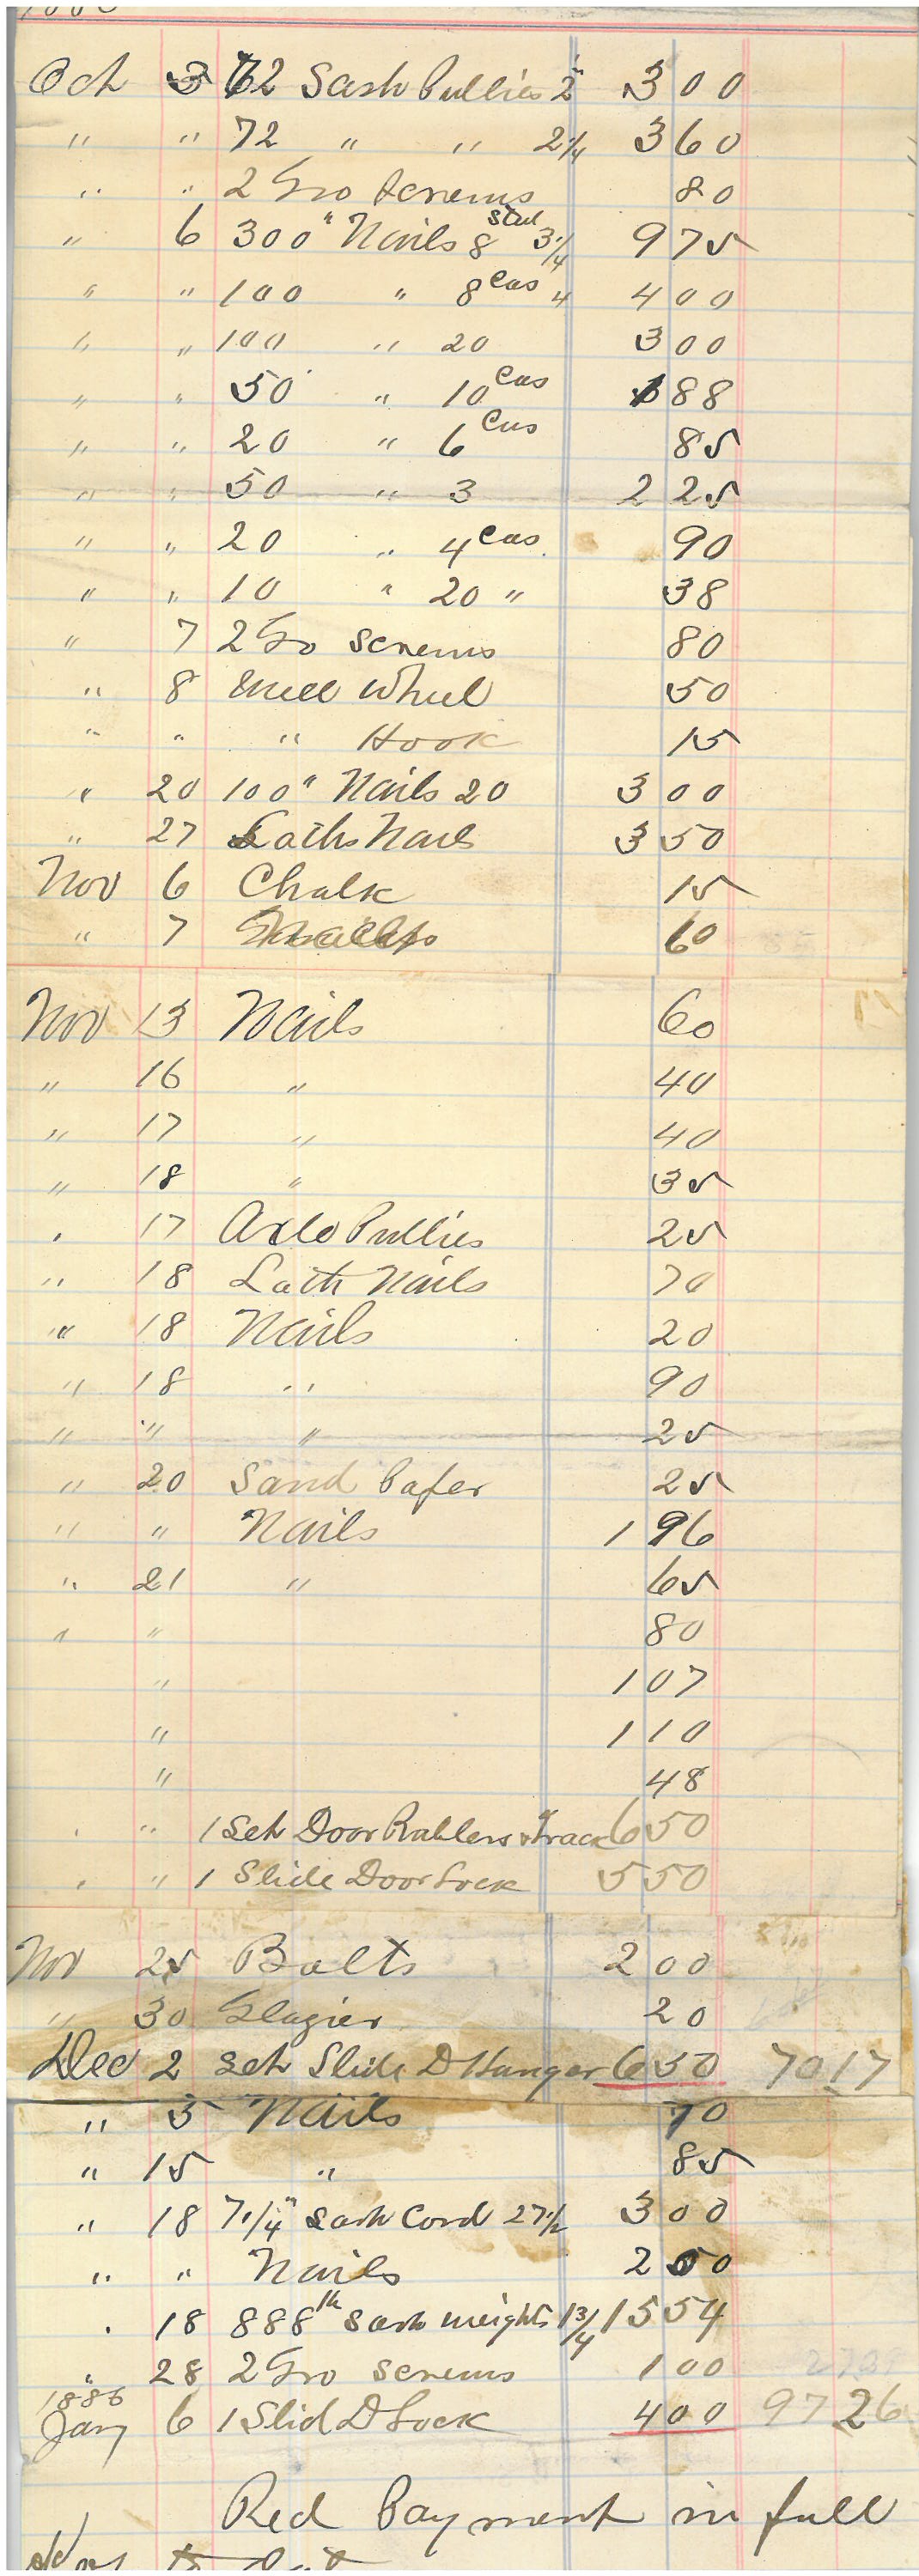 Oct 3 62 Sash Pullies 2" 3 00
" " 72 " " 2 1/4 3 60
" " 2 Gro Screws 80
" 6 300 " Nails 8 Steel 3 1/4 9 75
" " 100 " 8 Cas 4 4 00
" " 100 " 20 3 00
" " 50 " 10 Cas 1 88
" " 20 " 6 Cas 85
" " 50 " 3 2 25
" " 20 " 4 Cas 90
" " 10 " 20 " 38
" 7 2 Gro Screws 80
" 8 Well Wheel 50
" " " Hook 15
" 20 100 " Nails 20 3 00
" 27 Laths Nails 3 50
Nov 6 Chalk 15
" 7 60
Nov 13 Nails 60
" 16 " 40
" 17 " 40
" 18 " 35
" 17 Axle Pullies 25
" 18 Lath Nails 70
" 18 Nails 20
" 18 " 90
" " " 25
" 20 Sand Paper 25
" " Nails 1 96
" 21 " 65
" " 80
" 1 07
" 1 10
" 48
" " 1 Set Door Rahlers & Track 6 50
" " 1 Slide Door Lock 5 50
Nov 25 Bolts 2 00
" 30 Glazier 20
Dec 2 Set Slide D Hanger 6 50 70 17
" 5 Nails 70
" 15 " 85
" 18 7 1/4 " Sash Cord 27 1/2 3 00
" " Nails 2 00
" 18 888 lb Sash Weights 1 3/4 15 54
" 28 2 Gro Screws 1 00
1886
Jany 6 1 Slid D Lock 4 00 97 26
Red Payment in full